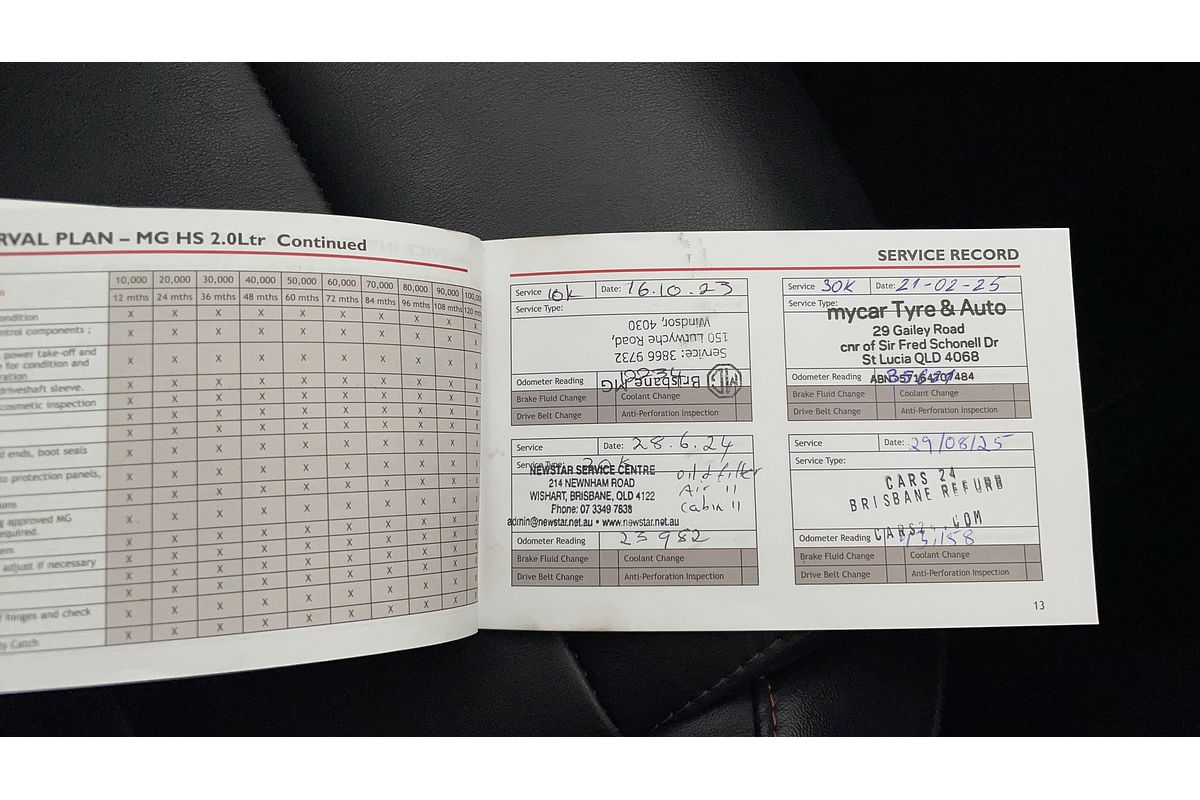 RVAL PLAN – MG HS 2.0Ltr Continued
10,000 20,000 30,000 40,000 50,000 60,000 70,000 80,000 90,000 100,00
12 mths 24 mths 36 mths 48 mths 60 mths 72 mths 84 mths 96 mths 108 mths 120 m
ondition X X X X X X X X X X
ntrol components ; X X X X X X X X X
power take-off and
for condition and X X X X X X X X X X
ration
driveshaft sleeve. X X X X X X X X X X
cosmetic inspection X X X X X X X X X X
X X X X X X X X X X
d ends, boot seals X X X X X X X X X X
protection panels, X X X X X X X X X
X X X X X X X X X X
approved MG X X X X X X X X X X
equired.
X X X X X X X X X X
adjust if necessary X X X X X X X X X X
X X X X X X X X X X
hinges and check X X X X X X X X X X
X X X X X X X X X X
SERVICE RECORD
Service 10K Date: 16.10.23
Service Type:
Brisbane MG
Service: 3866 9732
150 Lutwyche Road,
Windsor, 4030
Odometer Reading
Brake Fluid Change Coolant Change
Drive Belt Change Anti-Perforation Inspection
Service Date: 28.6.24
Service Type: 20K
NEWSTAR SERVICE CENTRE
214 NEWNHAM ROAD
WISHART, BRISBANE, QLD 4122
Phone: 07 3349 7838
admin@newstar.net.au • www.newstar.net.au
oil & filter
Air 11
Cabin 11
Odometer Reading 23982
Brake Fluid Change Coolant Change
Drive Belt Change Anti-Perforation Inspection
Service 30K Date: 21-02-25
Service Type:
mycar Tyre & Auto
29 Gailey Road
cnr of Sir Fred Schonell Dr
St Lucia QLD 4068
Odometer Reading ABN
Brake Fluid Change Coolant Change
Drive Belt Change Anti-Perforation Inspection
Service Date: 29/08/25
Service Type:
CARS 24
BRISBANE REFURB
CARS24.COM
Odometer Reading
Brake Fluid Change Coolant Change
Drive Belt Change Anti-Perforation Inspection
13